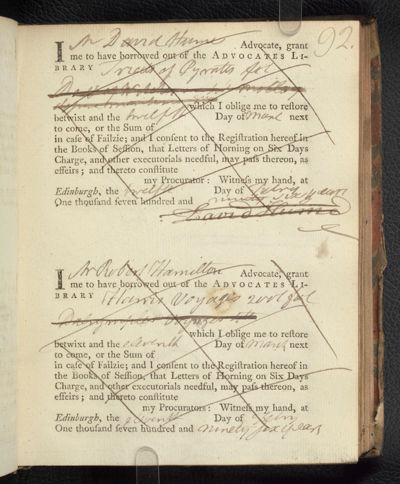 92.
I Mr David Hume Advocate, grant
me to have borrowed out of the ADVOCATES LI-
BRARY Tryals of Pyrates fol
which I oblige me to reſtore
betwixt and the twelfth Day of March next
to come, or the Sum of
in caſe of Failzie; and I conſent to the Regiſtration hereof in
the Books of Seſſion, that Letters of Horning on Six Days
Charge, and other executorials needful, may paſs thereon, as
effeirs; and thereto conſtitute
my Procurator: Witneſs my hand, at
Edinburgh, the twelfth Day of Febry
One thouſand ſeven hundred and ninety six years
David Hume
I Mr Robert Hamilton Advocate, grant
me to have borrowed out of the ADVOCATES LI-
BRARY Harris Voyages 2 vol fol
which I oblige me to reſtore
betwixt and the eleventh Day of March next
to come, or the Sum of
in caſe of Failzie; and I conſent to the Regiſtration hereof in
the Books of Seſſion, that Letters of Horning on Six Days
Charge, and other executorials needful, may paſs thereon, as
effeirs; and thereto conſtitute
my Procurators: Witneſs my hand, at
Edinburgh, the eleventh Day of
One thouſand ſeven hundred and ninety six years